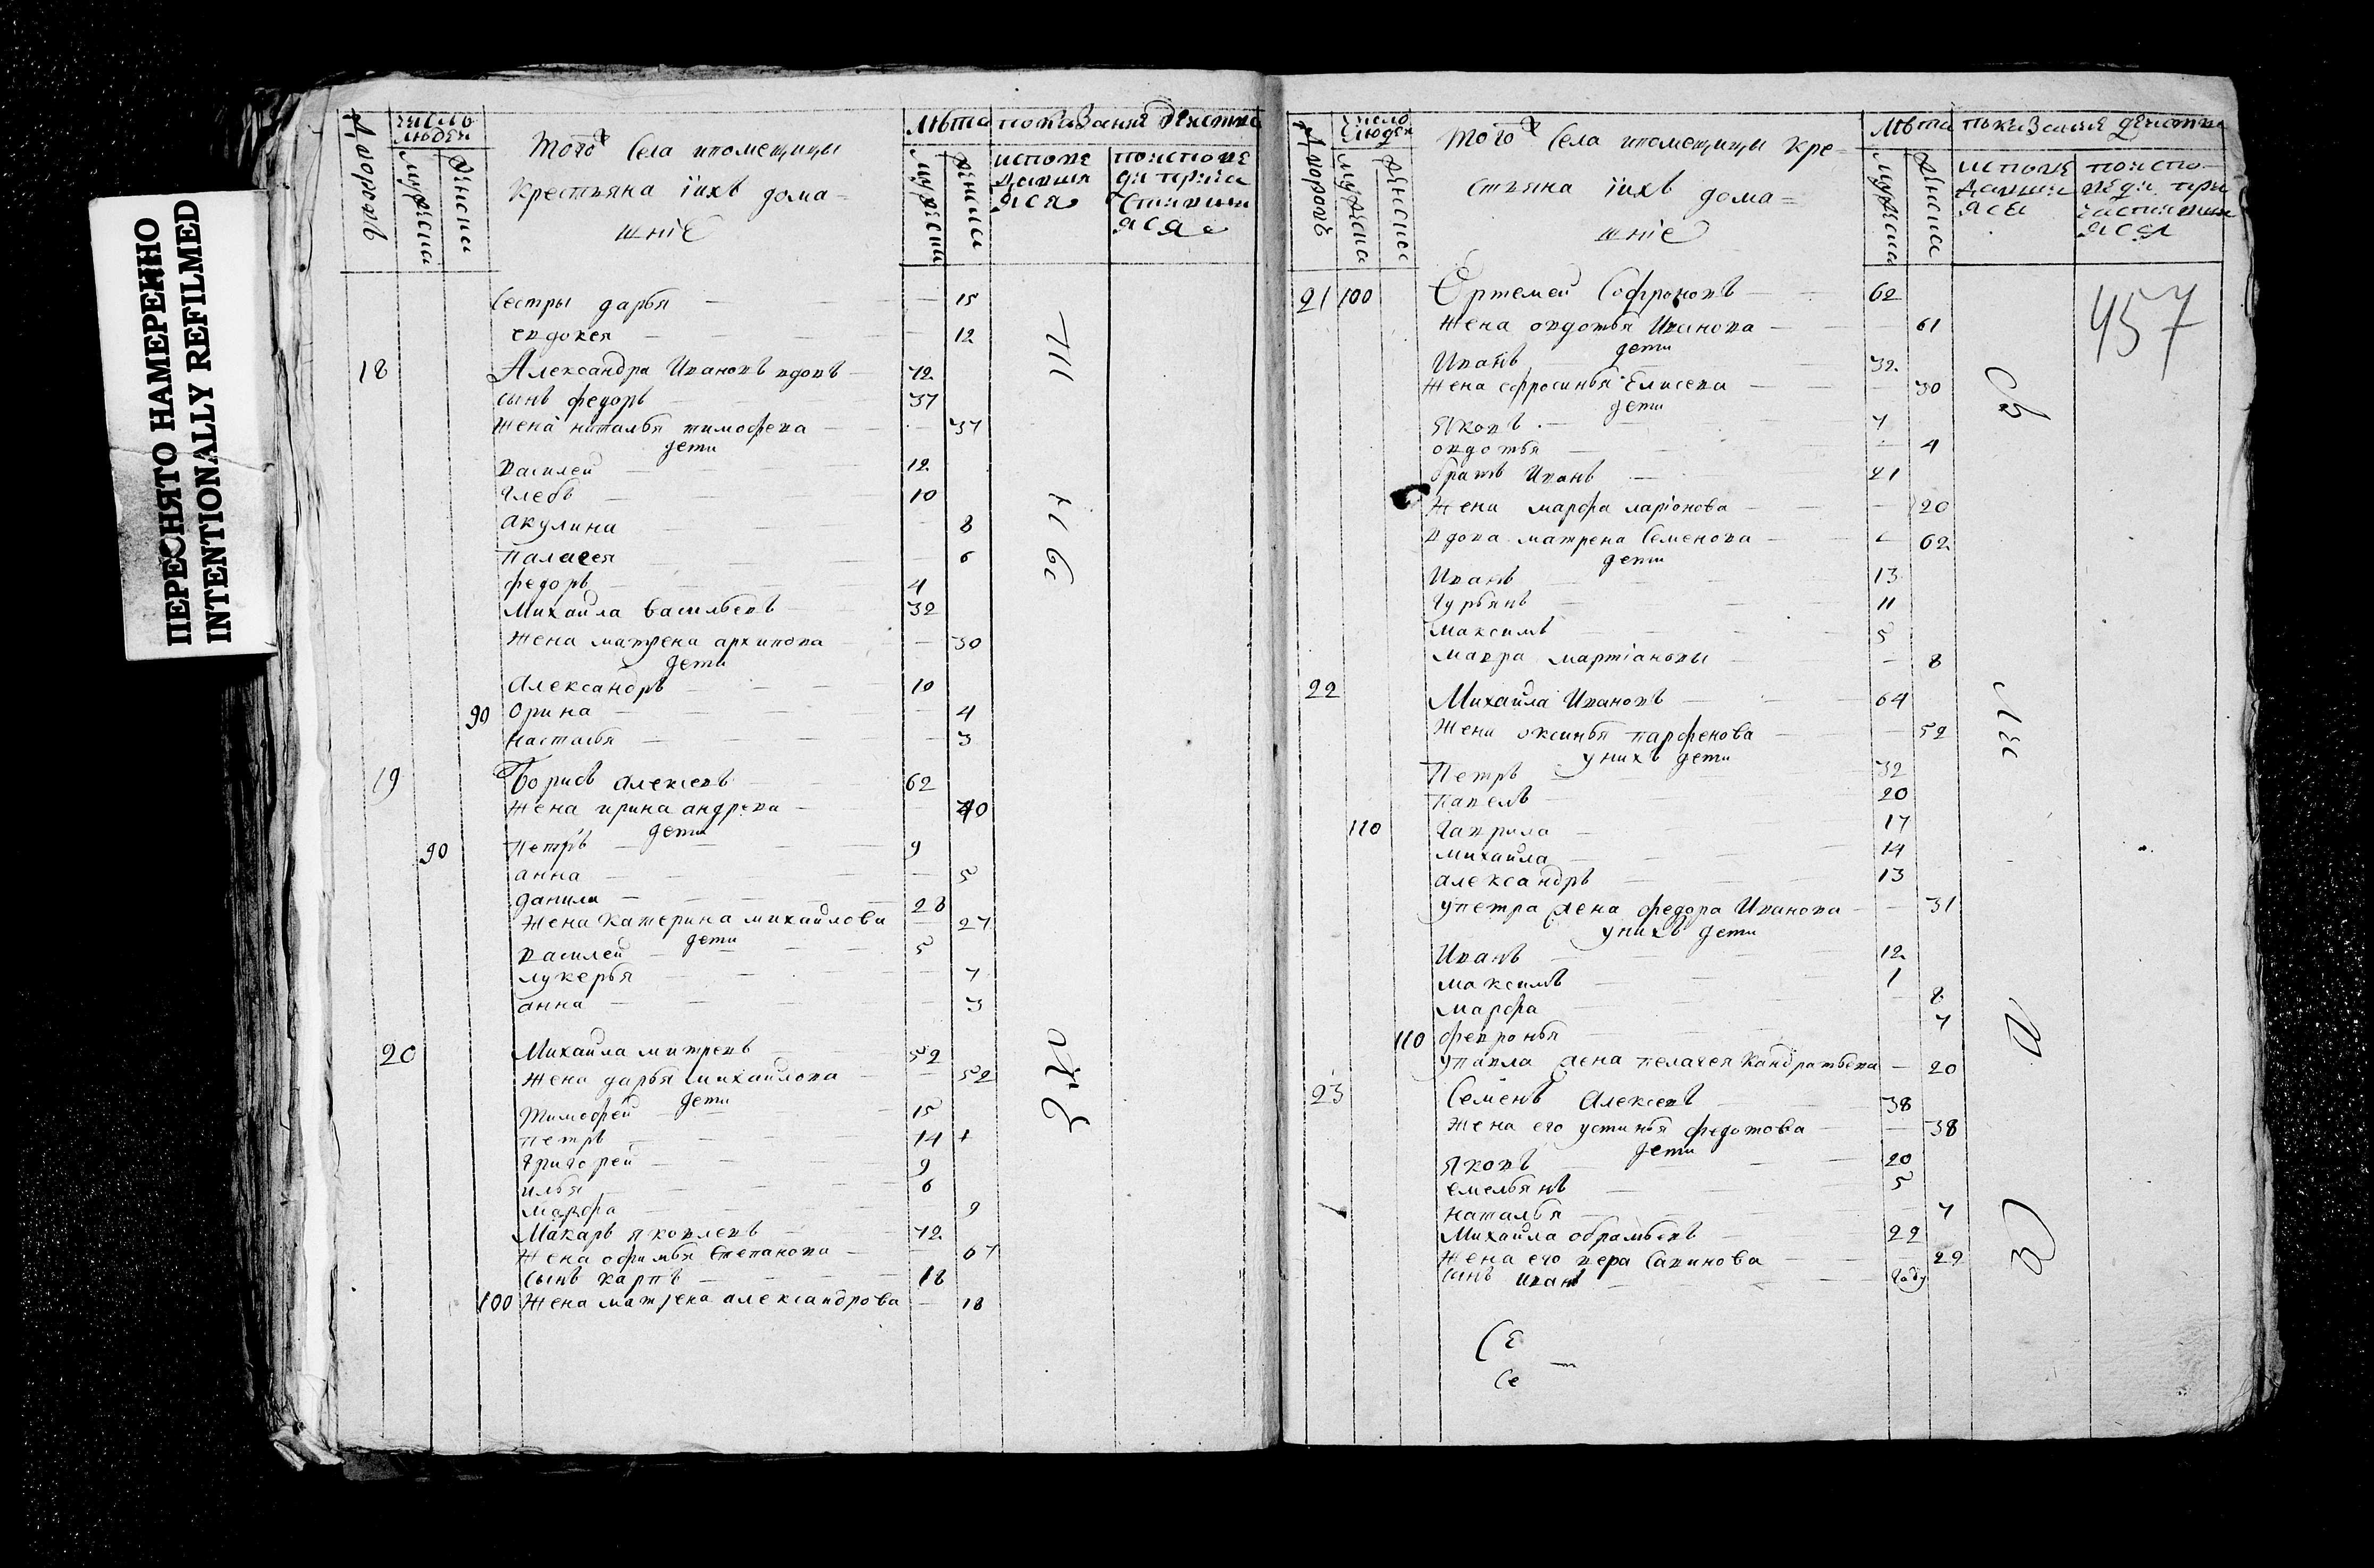 ПЕРЕСНЯТО НАМЕРЕННО
INTENTIONALLY REFILMED
дворовъ
число людей
мужеска
женска
Тогож Села ипомещицы
крестьяна їихъ дома=
шніе
лѣта
мужеска
женска
показание действа
исповедавшияся
поисповеди причастившияся
Сестры дарья — 15
евдокея — 12
18 Александра Ивановъ вдовъ 72
сынъ федоръ 37
жена наталья тимофева — 37
дети
василей 12
глебъ 10
акулина — 8
палагея — 6
федоръ 4
Михаила васильевъ 32
жена матрена архипова — 30
дети
Александръ 10
90 Орина — 4
настасья — 3
19 Борисъ алексевъ 62
жена ирина андрева — 40
дети
90 Петръ 9
анна — 5
данила 28
жена катерина михайлова — 27
дети
василей 5
лукерья — 7
анна — 3
20 Михаила митревъ 52
жена дарья михайлова — 52
дети
Тимофей 15
петръ 14 +
григорей 9
илья 6
марфа 9
Макаръ яковлевъ 72
жена офимья степанова — 67
сынъ карпъ 18
100 жена матрена александрова — 18
дворовъ
число людей
мужеска
женска
Тогож Села ипомещицы кре-
стьяна їихъ дома=
шніе
лѣта
мужеска
женска
показания действа
исповедавшияся
поисповеди причастившияся
457
21 100 Ортемей Софроновъ 62
жена овдотья Иванова — 61
дети
Иванъ 32
жена офросинья Елисева — 30
дети
яковъ 7
овдотья — 4
братъ Иванъ 21
жена марфа ларіонова — 20
вдова матрена Семенова — 62
дети
Иванъ 13
гурьянъ 11
максимъ 5
мавра мартіановы — 8
22 Михаила Ивановъ 64
жена оксинья парфенова — 52
унихъ дети
Петръ 32
павелъ 20
110 гаврила 17
михаила 14
александръ 13
упетра жена федора Иванова — 31
унихъ дети
Иванъ 12
максимъ 1
марфа — 8
110 февронья 7
упавла жена пелагея Кандратьева — 20
23 Семенъ Алексевъ 38
жена его устинья федотова — 38
дети
яковъ 20
емельянъ 5
наталья 7
Михаила обрамьевъ 22
жена его вера Савинова — 22
сынъ иванъ году
Се
Се